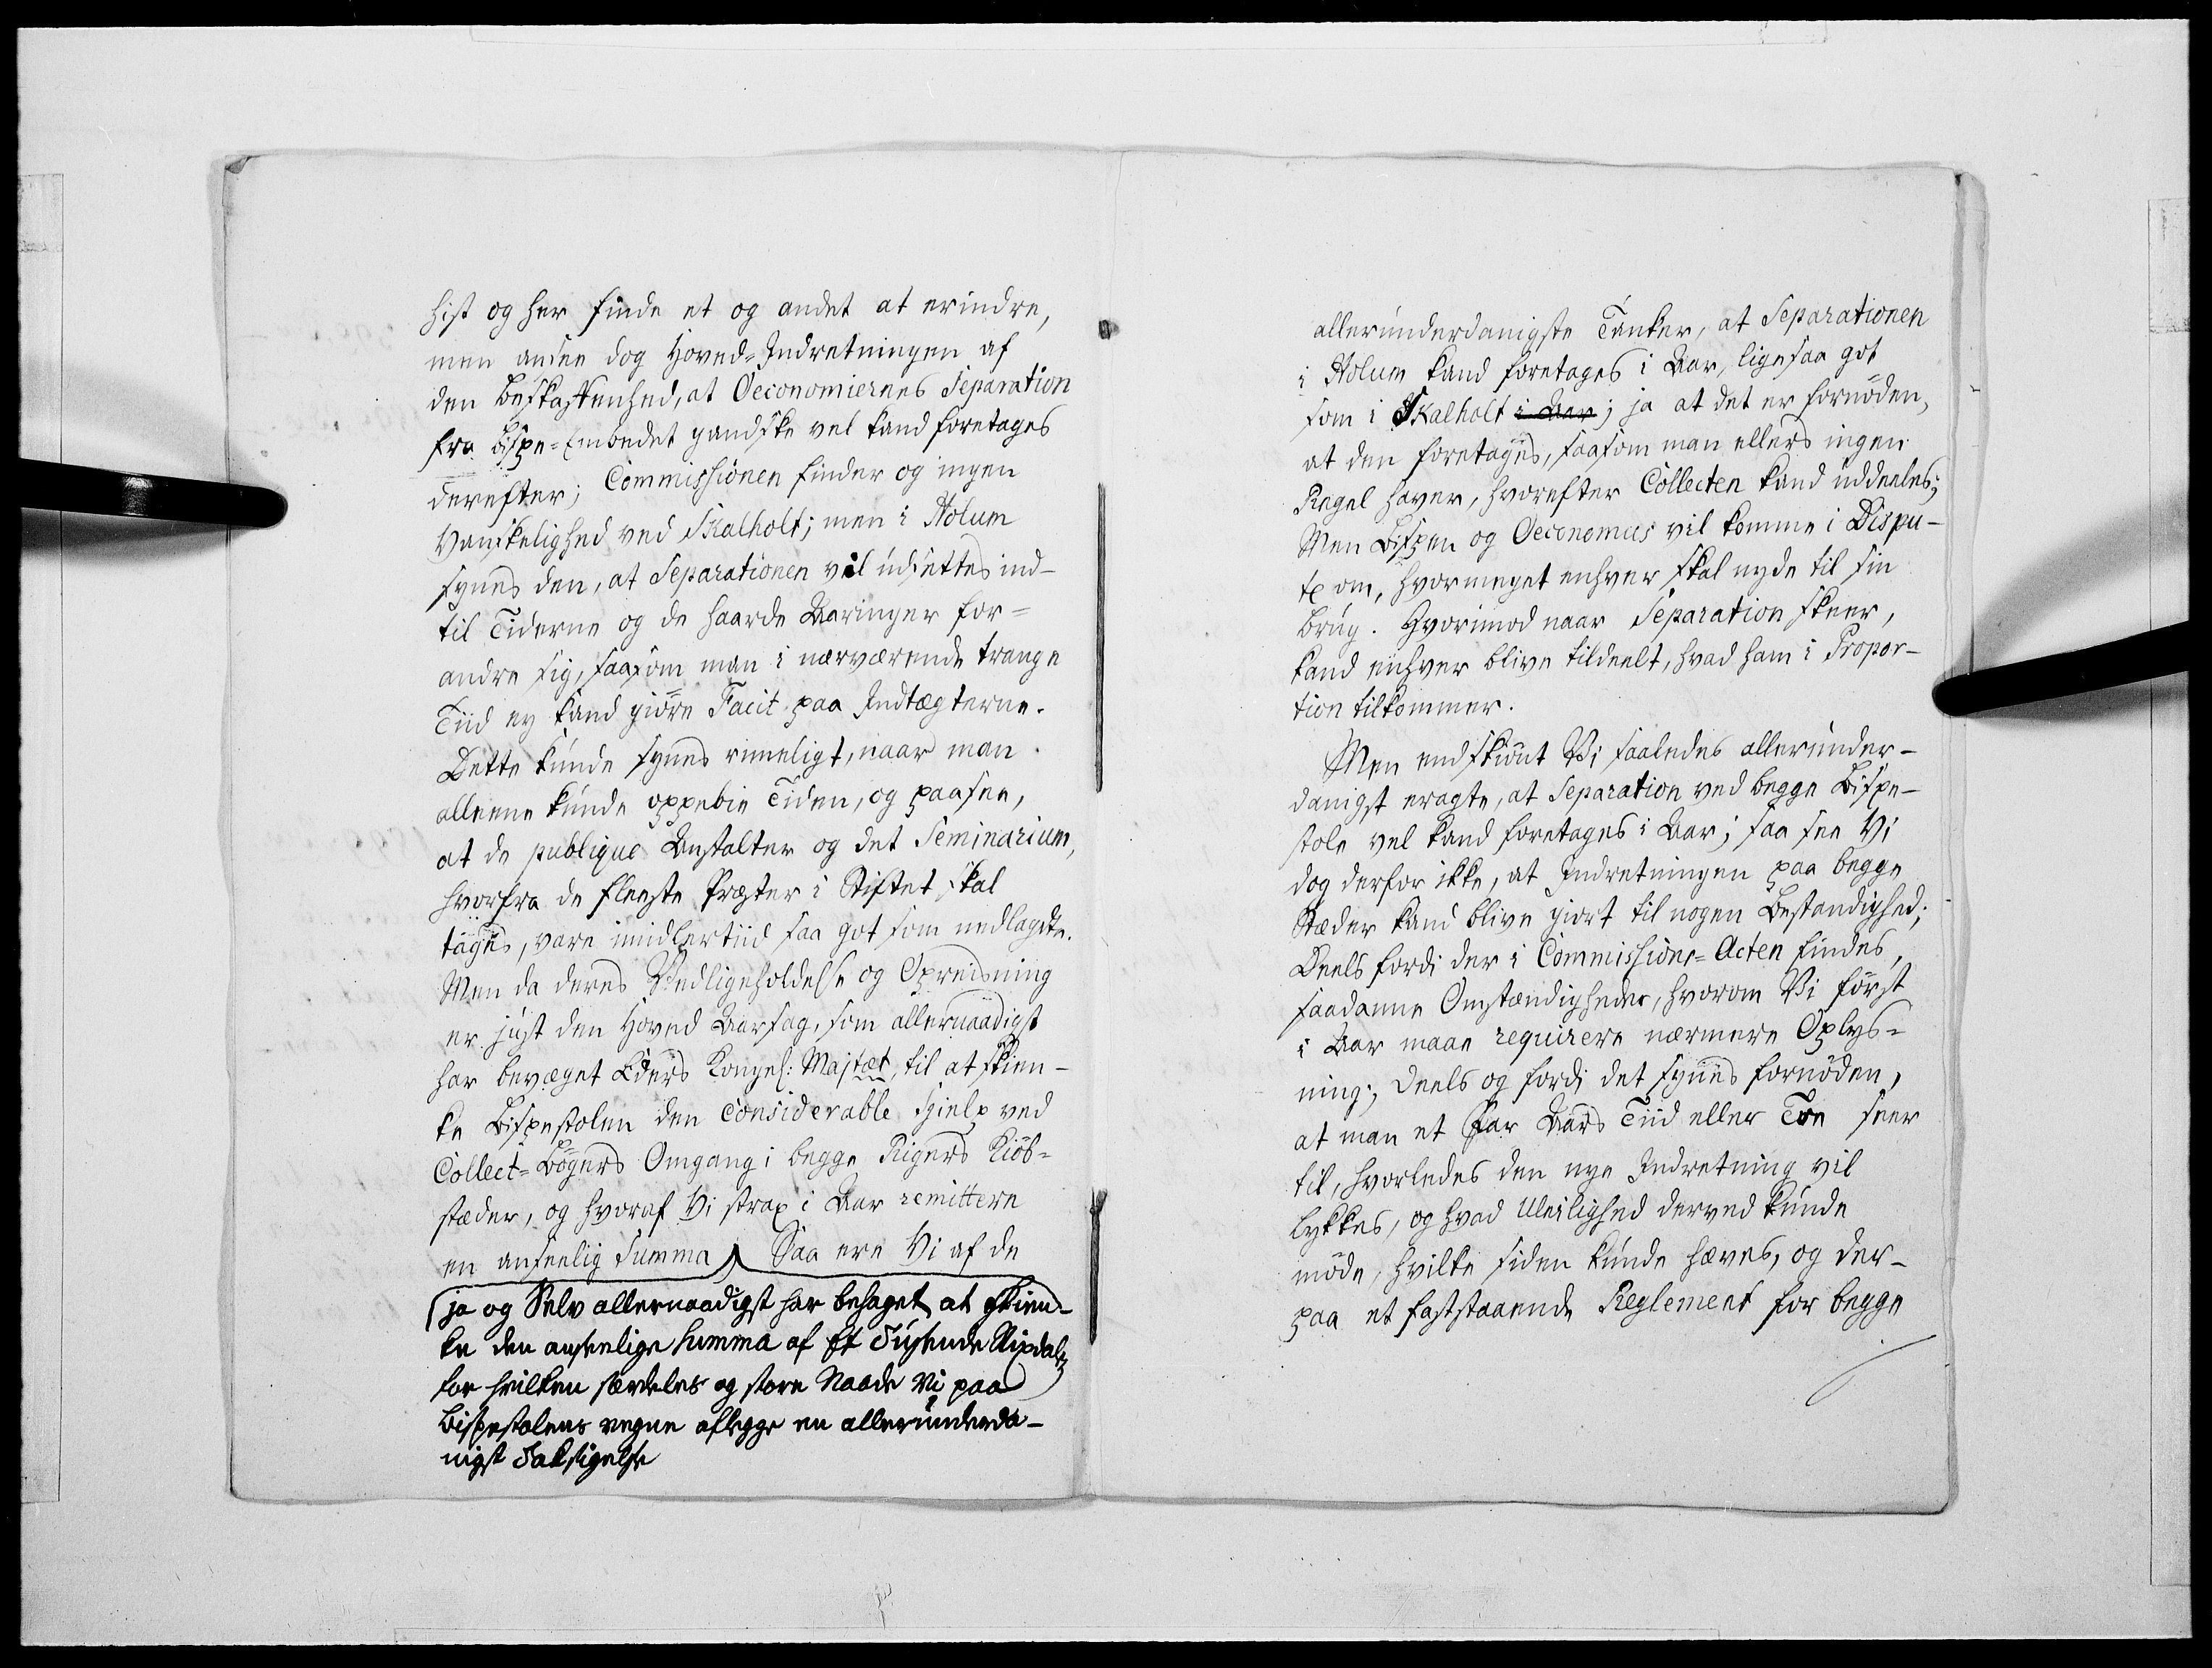 hist og her finde et og andet at erindre,
men ansee dog Hoved-Indretningen af
den Beskaffenhed, at Oeconomiernes Separation
fra Bispe-Embedet gandske vel kand foretages
derefter; Commissionen finder og ingen
Vanskelighed ved Skalholt; men i Holum
synes den, at Separationen vil udsettes ind-
til Tiderne og de haarde Aaringer for-
andre sig, saasom man i nærværende trange
Tiid ey kand giöre Facit paa Indtægterne.
Dette kunde synes rimeligt, naar man
alleene kunde oppebie Tiden, og paasee,
at de publique Anstalter og det Seminarium,
hvorfra de fleeste Præster i Stiftet skal
tages, vare imidlertiid saa got som nedlagdte.
Men da deres Vedligeholdelse og Opreisning
er just den Hoved Aarsag, som allernaadigst
har bevæget Eders Kongel: Majtæt, til at skien-
ke Bispestolen den considerable Hielp ved
Collect-Bögers Omgang i begge Rigers Kiöb-
stæder, og hvoraf Vi strax i Aar remittere
en anseelig Summa Saa ere Vi af de
ja og Selv allernaadigst har behaget at skien-
ke den anseelige Summa af Et Tusende Rixdaler
for hvilken særdeles og store Naade Vi paa
Bispestolens vegne aflegge en allerunderda-
nigst Taksigelse
allerunderdanigste Tanker, at Separationen
i Holum kand foretages i Aar, ligesaa got
som i Skalholt i Aar; ja at det er fornöden,
at den foretages, saasom man ellers ingen
Regel haver, hvorefter Collecten kand uddeeles;
Men Bispen og Oeconomus vil komme i Dispu-
te om, hvormeget enhver skal nyde til sin
Brug. Hvorimod naar Separation skeer,
kand enhver blive tildeelt, hvad ham i Propor-
tion tilkommer.
Men endskiönt Vi saaledes allerunder-
danigst eragte, at Separation ved begge Bispe-
stole vel kand foretages i Aar; saa see Vi
dog derfor ikke, at Indretningen paa begge
Stæder kand blive giort til nogen Bestandighed;
Deels fordi der i Commissions-Acten findes,
saadanne Omstændigheder, hvorom Vi först
i Aar maae requirere nærmere Oplys-
ning; Deels og fordi det synes fornöden,
at man et Par Aars Tiid eller Tre seer
til, hvorledes den nye Indretning vil
lykkes, og hvad Uleilighed derved kunde
möde, hvilke siden kunde hæves, og der-
paa et faststaaende Reglement for begge